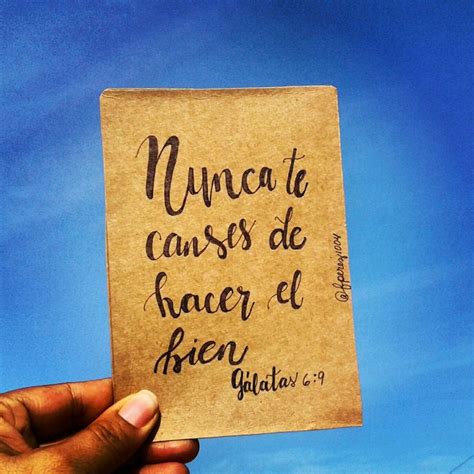 Nunca te
canses de
hacer el
bien
Gálatas 6:9
@fperez1004